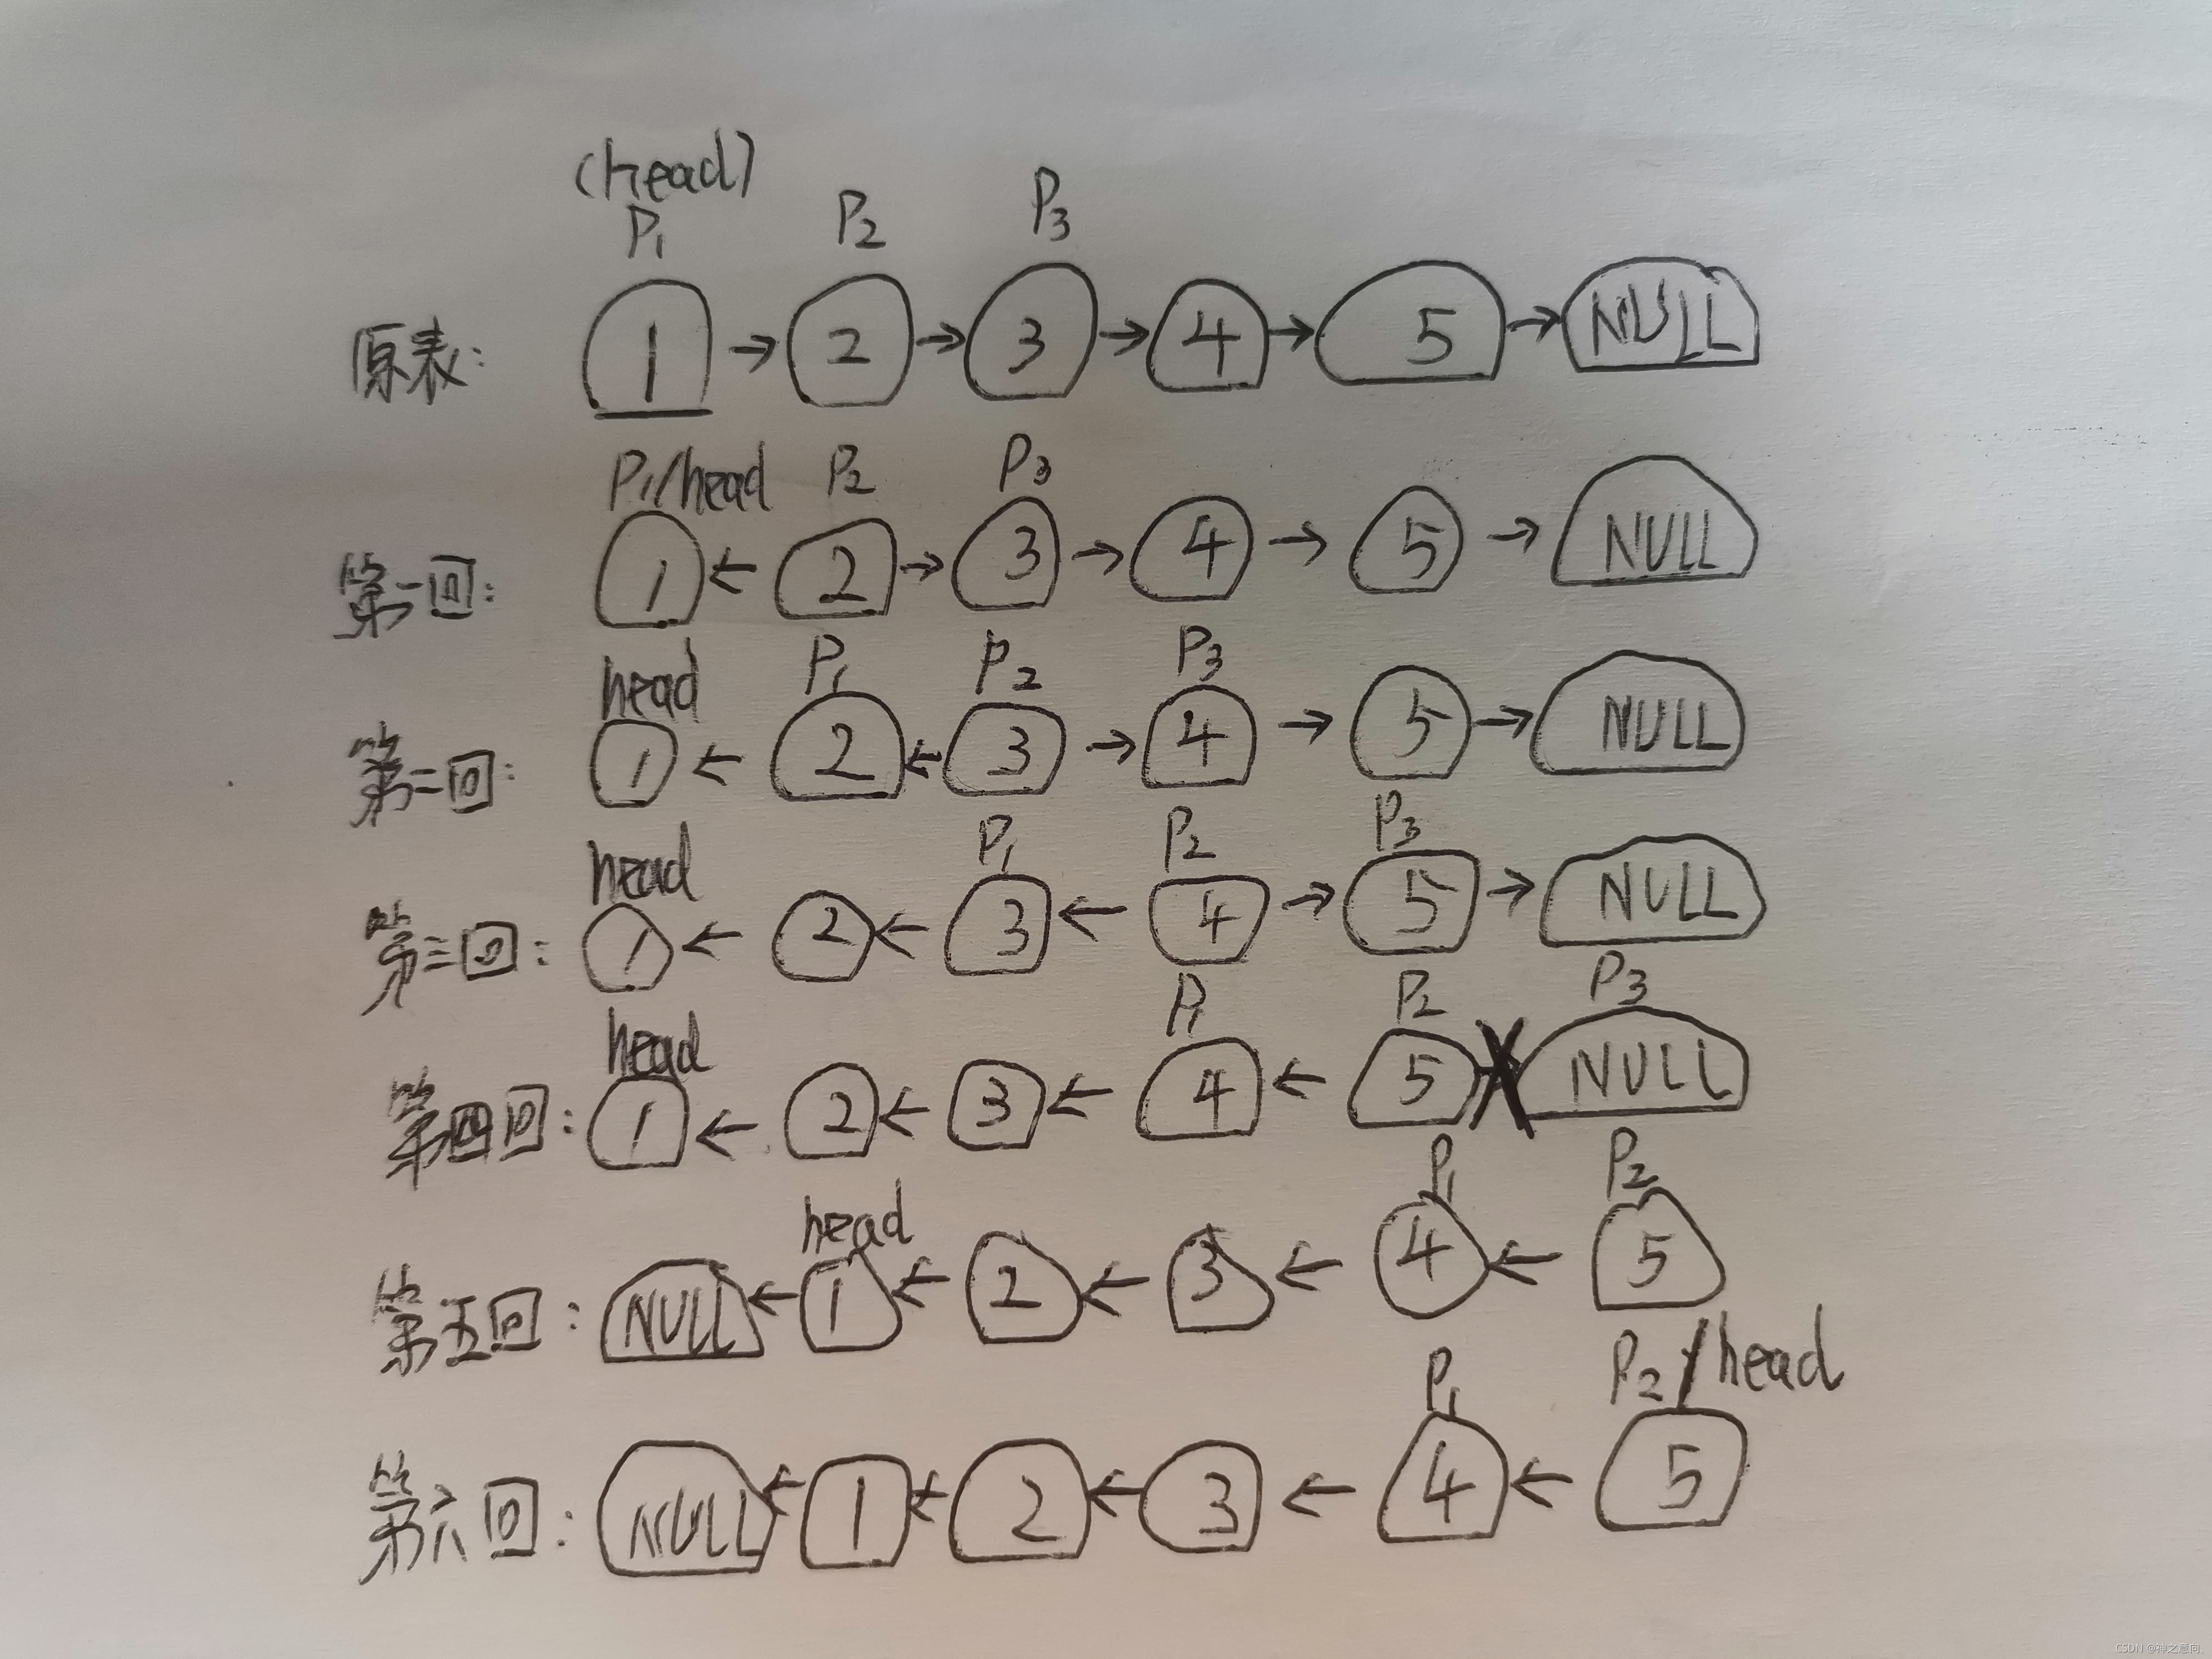 (head)
P1 P2 P3
原表: 1 → 2 → 3 → 4 → 5 → NULL
P1/head P2 P3
第一回: 1 ← 2 → 3 → 4 → 5 → NULL
head P1 P2 P3
第二回: 1 ← 2 ← 3 → 4 → 5 → NULL
head P1 P2 P3
第三回: 1 ← 2 ← 3 ← 4 → 5 → NULL
head P1 P2 P3
第四回: 1 ← 2 ← 3 ← 4 ← 5 NULL
head P1 P2
第五回: NULL ← 1 ← 2 ← 3 ← 4 ← 5
P1 P2/head
第六回: NULL ← 1 ← 2 ← 3 ← 4 ← 5
CSDN @神之意向